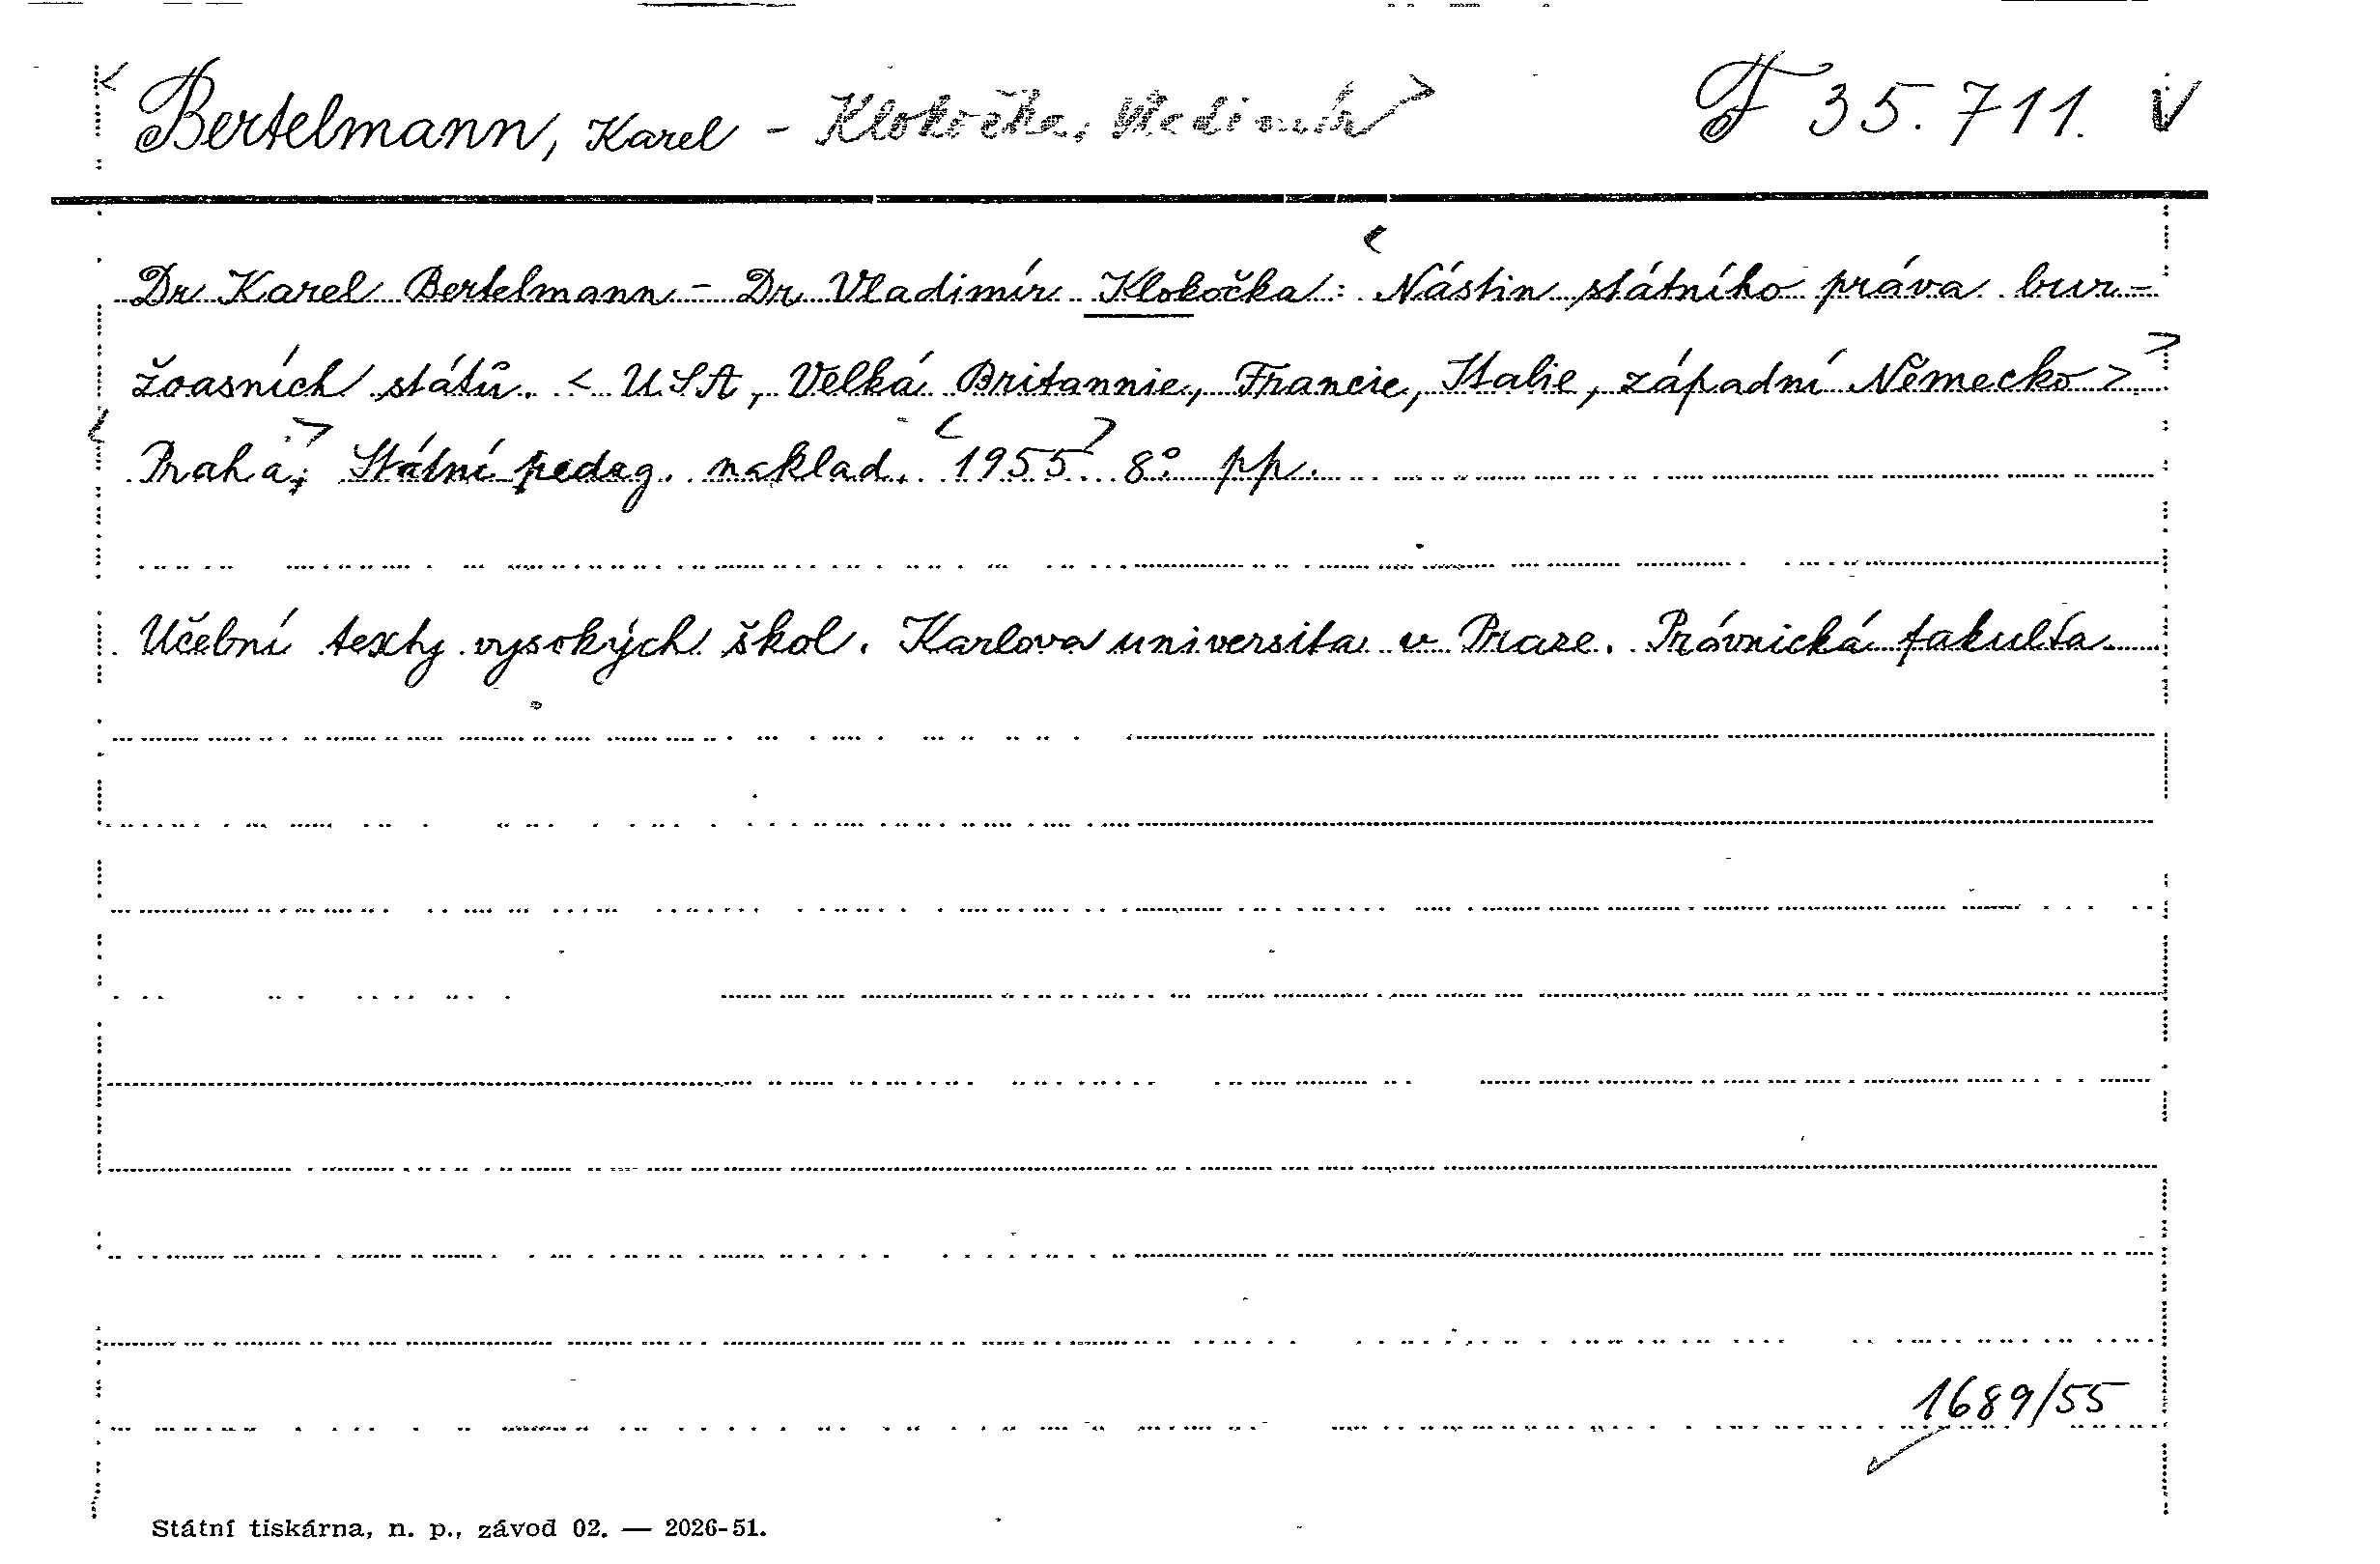 < Bertelmann, Karel - Klokočka, Vladimír > F 35.711. V
Dr Karel Bertelmann - Dr Vladimír Klokočka: < Nástin státního práva bur-
žoasních států. < USA, Velká Britannie, Francie, Itálie, západní Německo > >
< Praha, > Státní pedag. naklad. < 1955. > 8° pp.
Učební texty vysokých škol. Karlova universita v Praze. Právnická fakulta.
1689/55
Státní tiskárna, n. p., závod 02. — 2026-51.